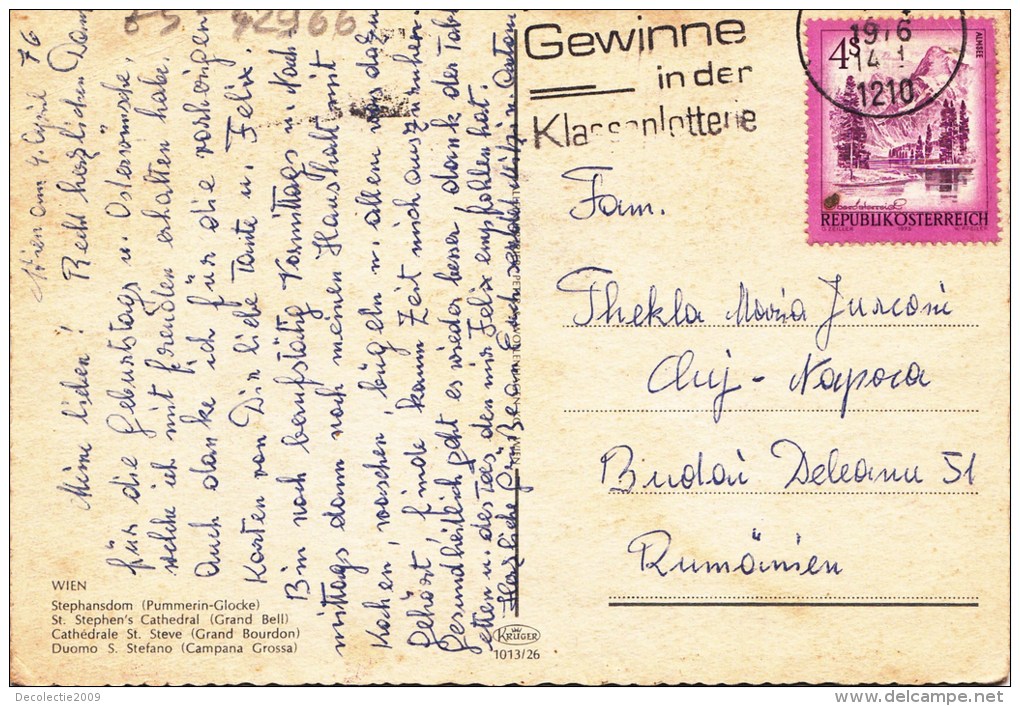 05-42966
Wien am 4. April 76
Meine lieben! Recht herzlichen Dank
für die Geburtstags u. Osterwünsche,
welche ich mit freuden erhalten habe.
Auch danke ich für die vorherigen
Karten von Dir liebe Tante u. Felix.
Bin noch berufstätig Vormittags u. Nach-
mittags dann noch meinen Haushalt mit
Kochen, waschen, bügeln u. allem was dazu
gehört, finde kaum Zeit mich auszuruhen.
Gesundheitlich geht es wieder besser dank der Tabl-
etten u. des Tees den mir Felix empfohlen hat.
Herzliche Grüße an Euch
Gewinne
in der
Klassenlotterie
1976
14 1
1210
4S
ALMSEE
Oberösterreich
REPUBLIK ÖSTERREICH
O. ZEILLER 1973
Fam.
Thekla Maria Jurconi
Cluj - Napoca
Budai Deleanu 51
Rumänien
WIEN
Stephansdom (Pummerin-Glocke)
St. Stephen's Cathedral (Grand Bell)
Cathédrale St. Steve (Grand Bourdon)
Duomo S. Stefano (Campana Grossa)
KRÜGER
1013/26
Decolectie2009
www.delcampe.net